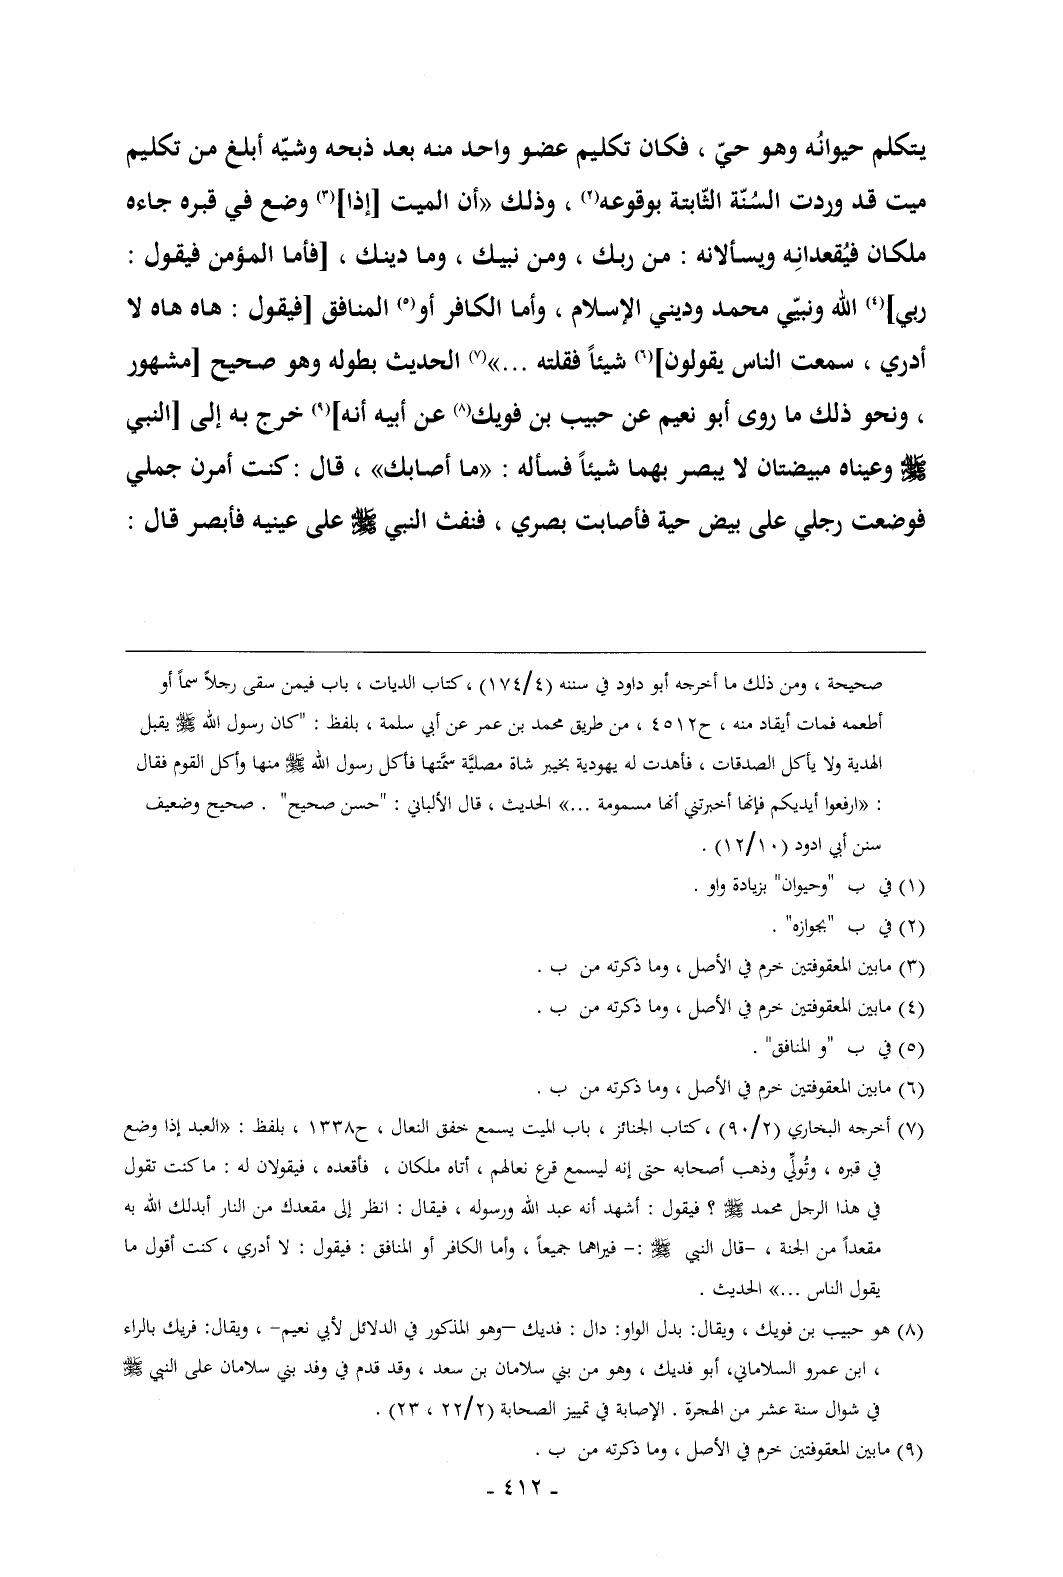 يتكلم حيوانُه وهو حيّ ، فكان تكليم عضو واحد منه بعد ذبحه وشيّه أبلغ من تكليم
ميت قد وردت السُنّة الثّابتة بوقوعه(٢) ، وذلك «أن الميت [إذا](٣) وضع في قبره جاءه
ملكان فيُقعدانِه ويسألانه : من ربك ، ومن نبيك ، وما دينك ، [فأما المؤمن فيقول :
ربي](٤) الله ونبيّي محمد وديني الإسلام ، وأما الكافر أو(٥) المنافق [فيقول : هاه هاه لا
أدري ، سمعت الناس يقولون](٦) شيئاً فقلته ...»(٧) الحديث بطوله وهو صحيح [مشهور
، ونحو ذلك ما روى أبو نعيم عن حبيب بن فويك(٨) عن أبيه أنه](٩) خرج به إلى [النبي
ﷺ وعيناه مبيضتان لا يبصر بهما شيئاً فسأله : «ما أصابك» ، قال : كنت أمرن جملي
فوضعت رجلي على بيض حية فأصابت بصري ، فنفث النبي ﷺ على عينيه فأبصر قال :
صحيحة ، ومن ذلك ما أخرجه أبو داود في سننه (١٧٤/٤) ، كتاب الديات ، باب فيمن سقى رجلاً سماً أو
أطعمه فمات أيقاد منه ، ح٤٥١٢ ، من طريق محمد بن عمر عن أبي سلمة ، بلفظ : "كان رسول الله ﷺ يقبل
الهدية ولا يأكل الصدقات ، فأهدت له يهودية بخيبر شاة مصليَّة سمَّتها فأكل رسول الله ﷺ منها وأكل القوم فقال
: «ارفعوا أيديكم فإنها أخبرتني أنها مسمومة ...» الحديث ، قال الألباني : "حسن صحيح" . صحيح وضعيف
سنن أبي ادود (١٢/١٠) .
(١) في ب "وحيوان" بزيادة واو .
(٢) في ب "بجوازه" .
(٣) مابين المعقوفتين خرم في الأصل ، وما ذكرته من ب .
(٤) مابين المعقوفتين خرم في الأصل ، وما ذكرته من ب .
(٥) في ب "و المنافق" .
(٦) مابين المعقوفتين خرم في الأصل ، وما ذكرته من ب .
(٧) أخرجه البخاري (٩٠/٢) ، كتاب الجنائز ، باب الميت يسمع خفق النعال ، ح١٣٣٨ ، بلفظ : «العبد إذا وضع
في قبره ، وتُولِّي وذهب أصحابه حتى إنه ليسمع قرع نعالهم ، أتاه ملكان ، فأقعده ، فيقولان له : ما كنت تقول
في هذا الرجل محمد ﷺ ؟ فيقول : أشهد أنه عبد الله ورسوله ، فيقال : انظر إلى مقعدك من النار أبدلك الله به
مقعداً من الجنة ، –قال النبي ﷺ :– فيراهما جميعاً ، وأما الكافر أو المنافق : فيقول : لا أدري ، كنت أقول ما
يقول الناس ...» الحديث .
(٨) هو حبيب بن فويك ، ويقال: بدل الواو: دال : فديك –وهو المذكور في الدلائل لأبي نعيم– ، ويقال: فريك بالراء
، ابن عمرو السلاماني، أبو فديك ، وهو من بني سلامان بن سعد ، وقد قدم في وفد بني سلامان على النبي ﷺ
في شوال سنة عشر من الهجرة . الإصابة في تمييز الصحابة (٢٢/٢ ، ٢٣) .
(٩) مابين المعقوفتين خرم في الأصل ، وما ذكرته من ب .
- ٤١٢ -